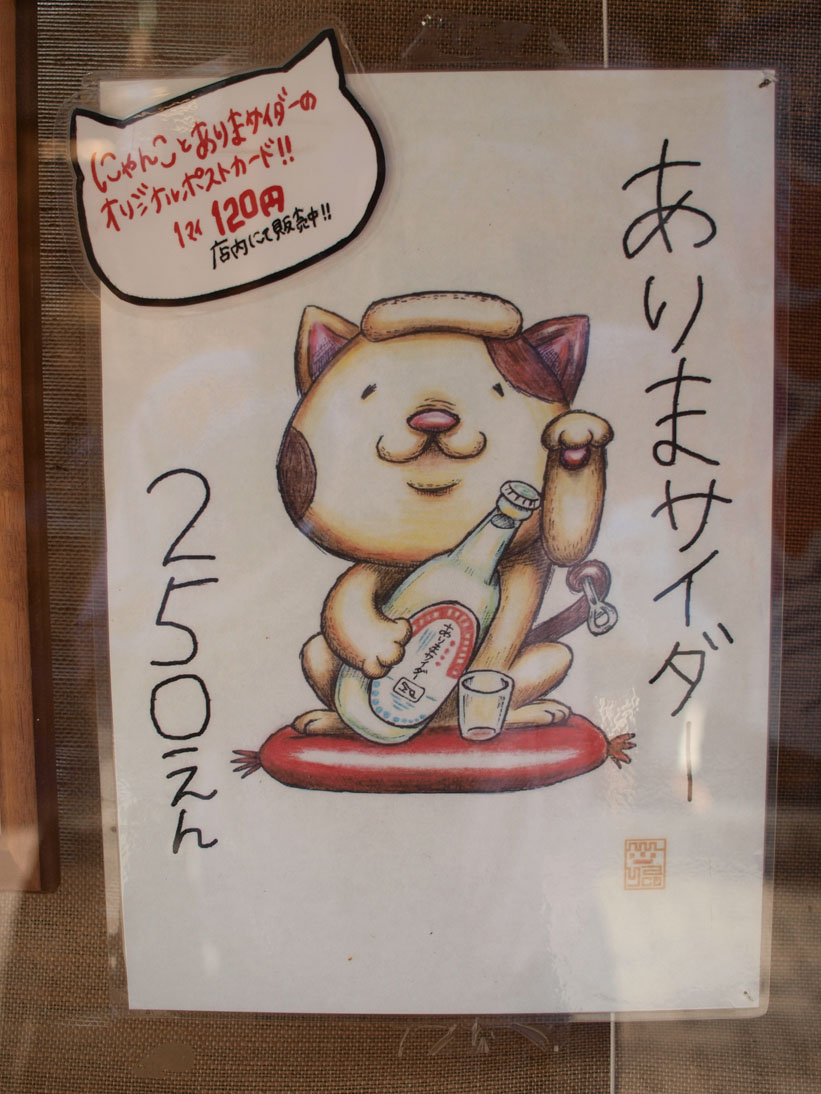 にゃんことありまサイダーの
オリジナルポストカード!!
1マイ 120円
店内にて販売中!!
ありまサイダー
250えん
ありまサイダー